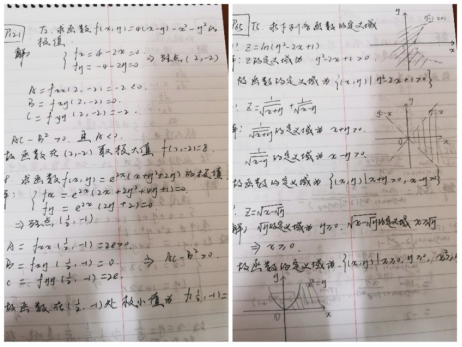 T5. 求函数 f(x,y)=4(x-y)-x²-y² 的
极值.
解
fx=4-2x=0
fy=-4-2y=0
⇒ 驻点 (2,-2)
A=fxx(2,-2)=-2<0.
B=fxy(2,-2)=0
C=fyy(2,-2)=-2.
AC-B²>0. 且 A<0.
故函数在 (2,-2) 取极大值 f(2,-2)=8.
求函数 f(x,y)=e²ˣ(x+y²+2y) 的极值
fx=e²ˣ(2x+2y²+4y+1)=0
fy=e²ˣ(2y+2)=0
⇒ 驻点 (½,-1)
A=fxx(½,-1)=2e>0.
B=fxy(½,-1)=0
C=fyy(½,-1)=2e.
⇒ AC-B²>0.
故函数在(½,-1)处极小值为 f(½,-1)=
T5. 求下列各函数的定义域
Z=ln(y²-2x+1)
Z的定义域为 y²-2x+1>0.
故函数的定义域为{(x,y)|y²-2x+1>0}
Z=1/√(x+y)+1/√(x-y)
1/√(x+y)的定义域为 x+y>0.
1/√(x-y)的定义域为 x-y>0.
故函数的定义域为{(x,y)|x+y>0,x-y>0}
Z=√(x-√y)
解) √y的定义域为 y≥0. √(x-√y)的定义域 x≥√y
⇒ x≥0.
故函数的定义域为{(x,y)|x≥0,y≥0,
y
x
0